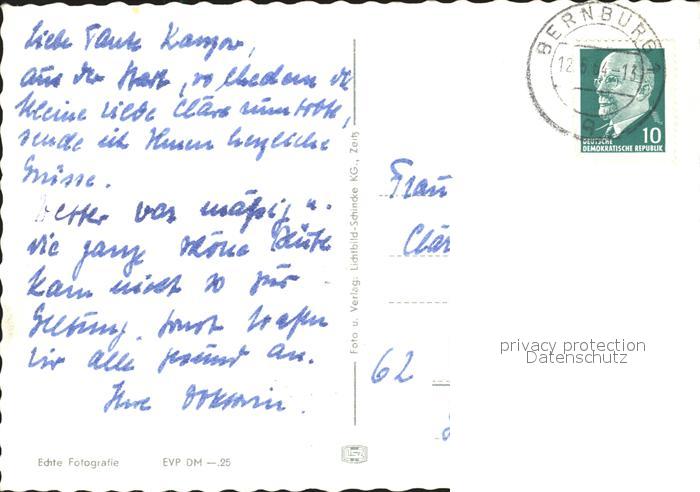 Liebe Tante Kanzow,
aus der Stadt, wo ehedem die
kleine liebe Clära rumtobte,
sende ich Ihnen herzliche
Grüsse.
Wetter war mäßig u.
die ganze schöne Blüte
kam nicht so zur
Geltung. Sonst trafen
wir alle gesund an.
Ihre
Echte Fotografie EVP DM —.25
Foto u. Verlag: Lichtbild-Schincke KG., Zeitz
BERNBURG
12.5.64-13
10
DEUTSCHE
DEMOKRATISCHE REPUBLIK
Frau
Clär
62
privacy protection
Datenschutz